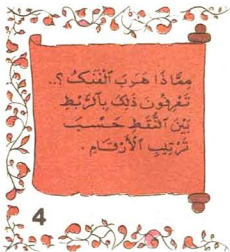 مِمَّاذَا هَرَبَ ٱلْفَنَكُ ؟..
تَعْرِفُونَ ذَلِكَ بِٱلرَّبْطِ
بَيْنَ ٱلنُّقَطِ حَسْبَ
تَرْتِيبِ ٱلْأَرْقَامِ .
4